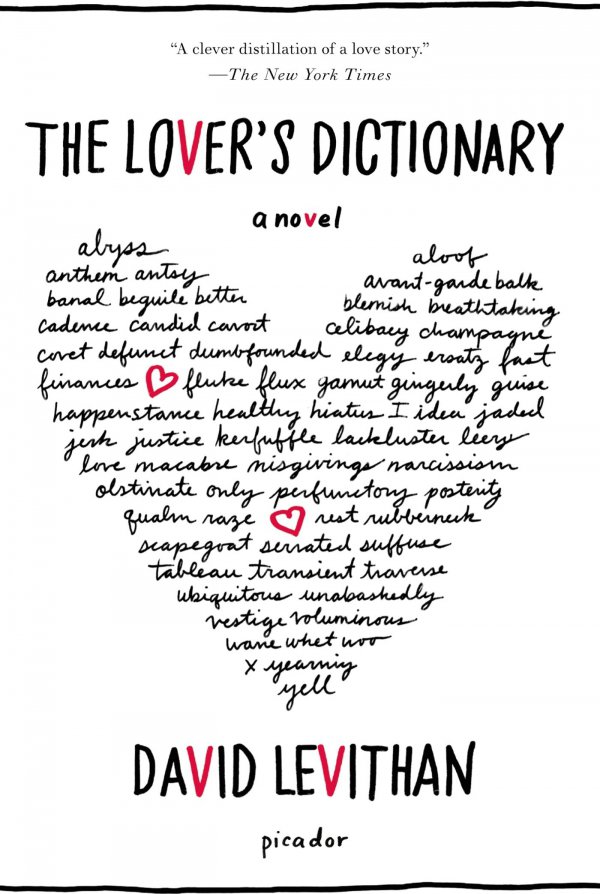 “A clever distillation of a love story.”
—The New York Times
THE LOVER’S DICTIONARY
a novel
abyss aloof
anthem antsy avant-garde balk
banal beguile better blemish breathtaking
cadence candid cavort celibacy champagne
covet defunct dumbfounded elegy ersatz fast
finances fluke flux gamut gingerly guise
happenstance healthy hiatus I idea jaded
jerk justice kerfuffle lackluster leery
love macabre misgivings narcissism
obstinate only perfunctory posterity
qualm raze rest rubberneck
scapegoat serrated suffuse
tableau transient traverse
ubiquitous unabashedly
vestige voluminous
wane whet woo
x yearning
yell
DAVID LEVITHAN
picador